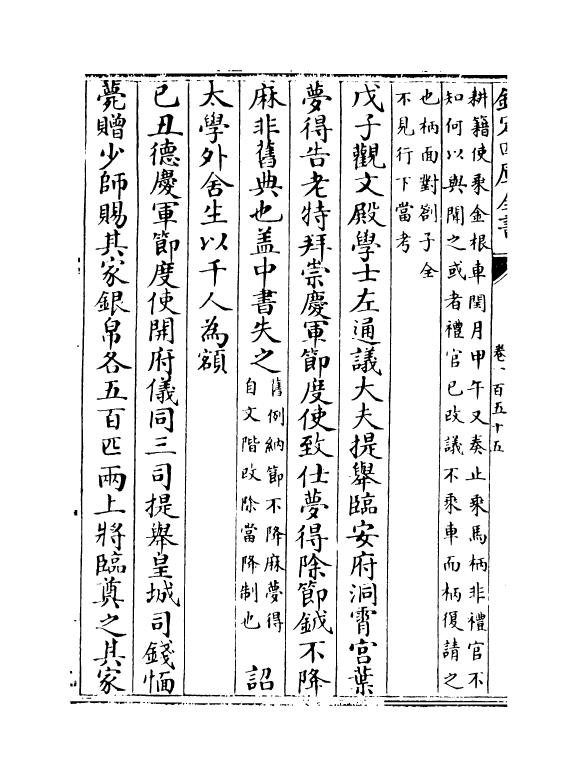 欽定四庫全書
卷一百五十五
耕籍使乘金根車閏月甲午又奏止乘馬柄非禮官不
知何以與聞之或者禮官已改議不乘車而柄復請之
也柄面對劄子全
不見行下當考
戊子觀文殿學士左通議大夫提舉臨安府洞霄宮葉
夢得告老特拜崇慶軍節度使致仕夢得除節鉞不降
麻非舊典也盖中書失之
舊例納節不降麻夢得
自文階改除當降制也
詔
太學外舍生以千人為額
己丑德慶軍節度使開府儀同三司提舉皇城司錢愐
薨贈少師賜其家銀帛各五百匹兩上將臨奠之其家